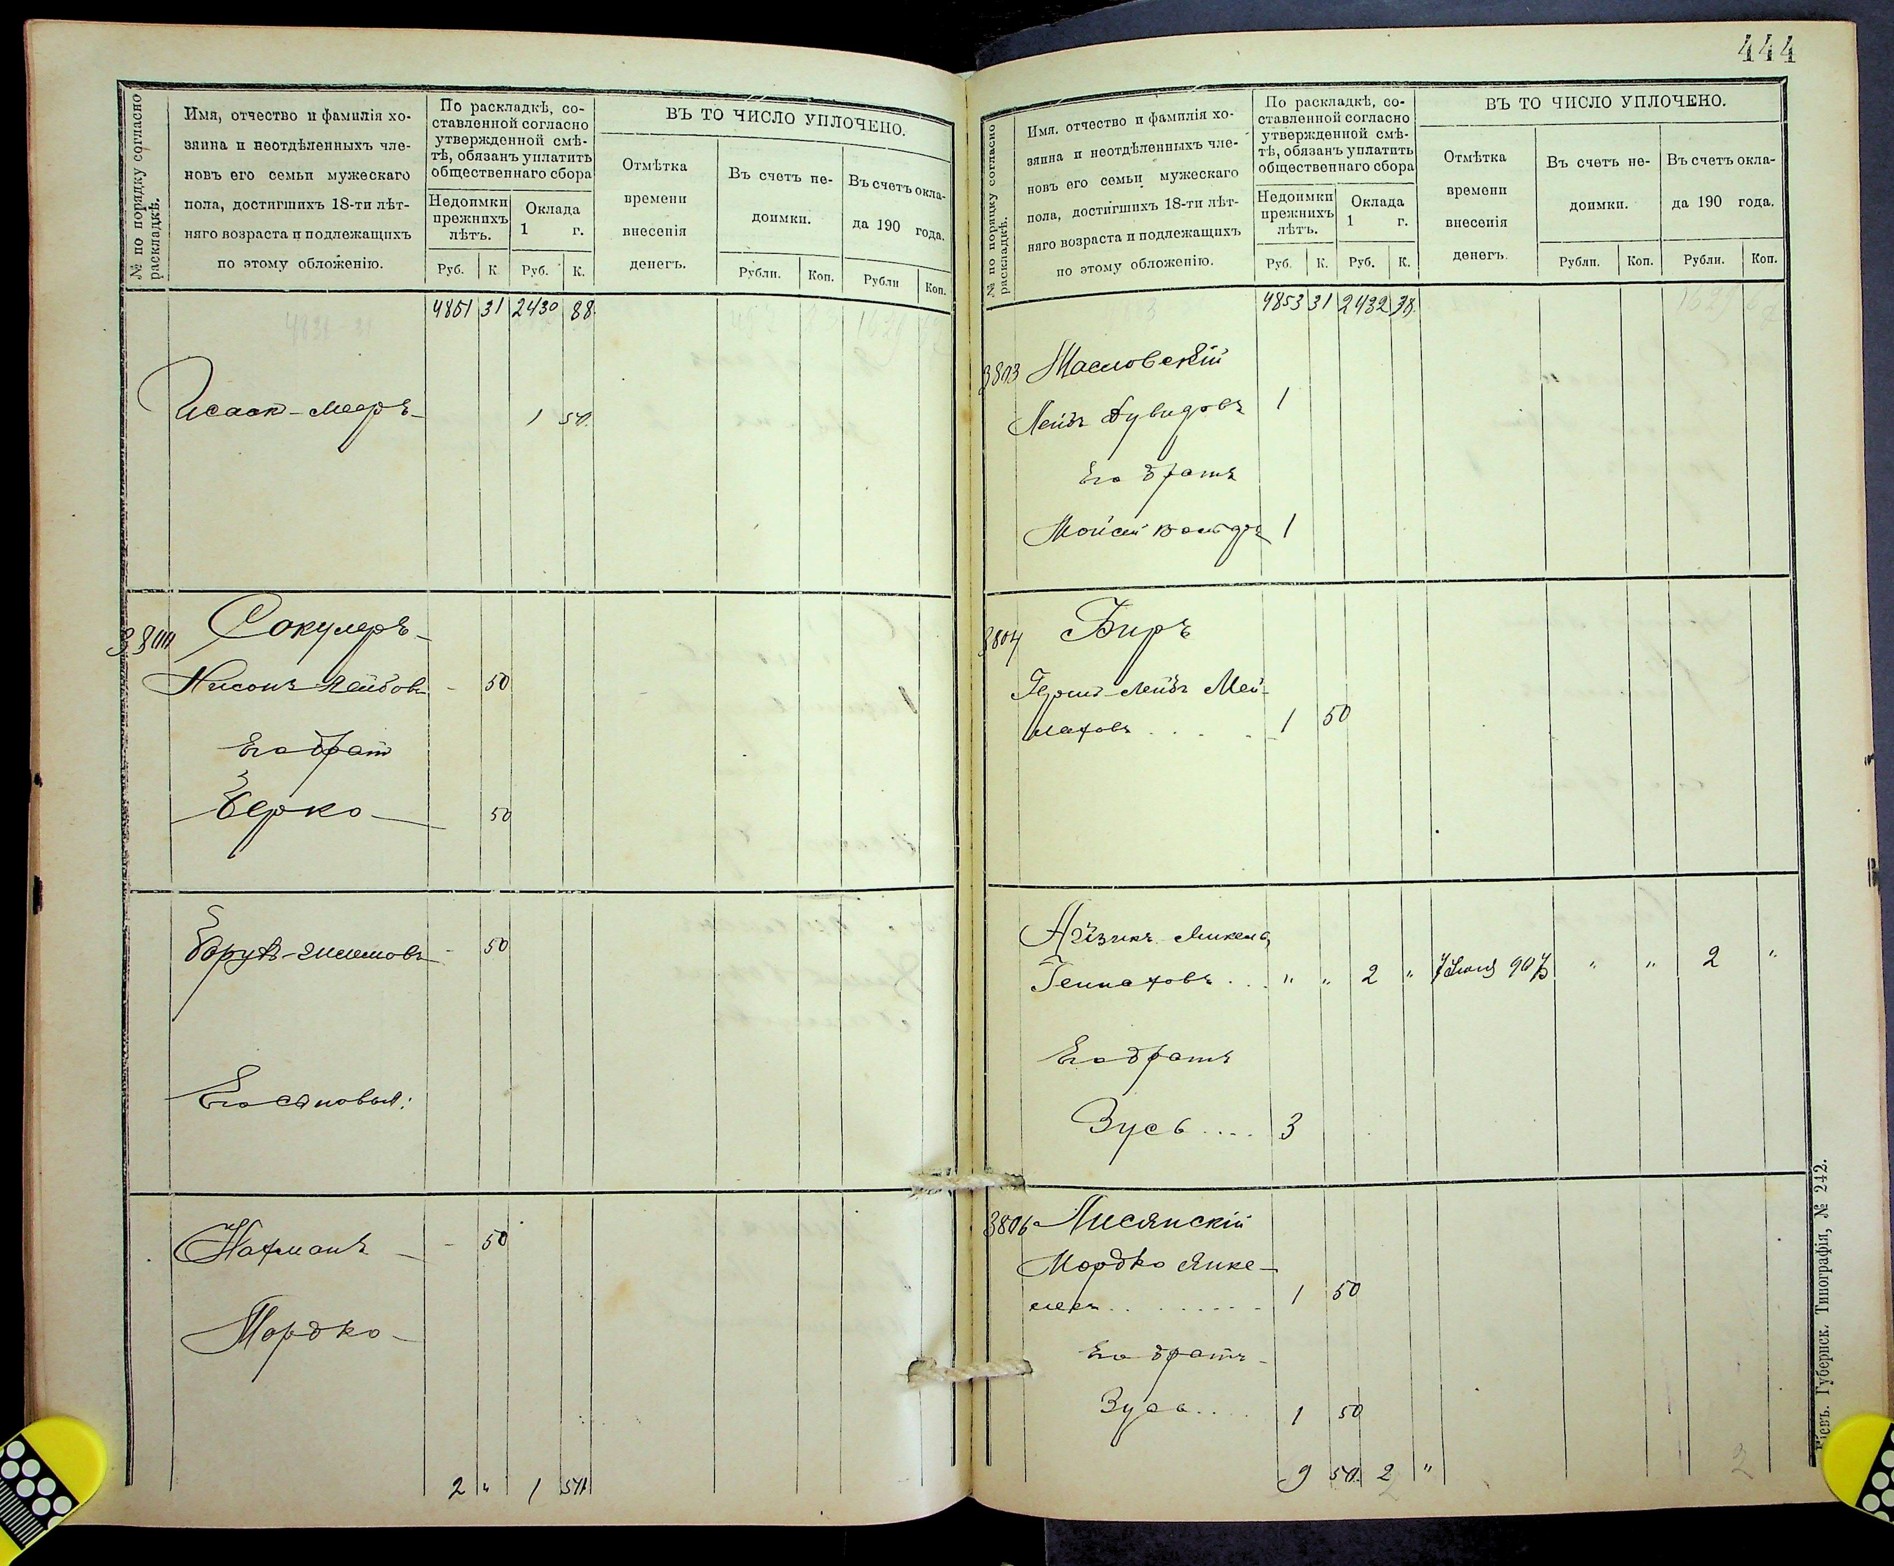 444
№ по порядку согласно раскладкѣ.
Имя, отчество и фамилія хо-
зяина и неотдѣленныхъ чле-
новъ его семьи мужескаго
пола, достигшихъ 18-ти лѣт-
няго возраста и подлежащихъ
по этому обложенію.
По раскладкѣ, со-
ставленной согласно
утвержденной смѣ-
тѣ, обязанъ уплатить
общественнаго сбора
Недоимки
прежнихъ
лѣтъ.
Оклада
1 г.
Руб. К. Руб. К.
ВЪ ТО ЧИСЛО УПЛОЧЕНО.
Отмѣтка
времени
внесенія
денегъ.
Въ счетъ не-
доимки.
Въ счетъ окла-
да 190 года.
Рубли. Коп. Рубли Коп.
4851 31 2430 88.
Исаак-Мееръ 1 50.
Сокулеръ
Нисонъ Лейбовъ - 50
Его брат
Берко 50
- 50
Его сыновья:
Нахманъ - 50
Мордко
2 " 1 50
№ по порядку согласно раскладкѣ.
Имя, отчество и фамилія хо-
зяина и неотдѣленныхъ чле-
новъ его семьи мужескаго
пола, достигшихъ 18-ти лѣт-
няго возраста и подлежащихъ
по этому обложенію.
По раскладкѣ, со-
ставленной согласно
утвержденной смѣ-
тѣ, обязанъ уплатить
общественнаго сбора
Недоимки
прежнихъ
лѣтъ.
Оклада
1 г.
Руб. К. Руб. К.
ВЪ ТО ЧИСЛО УПЛОЧЕНО.
Отмѣтка
времени
внесенія
денегъ.
Въ счетъ не-
доимки.
Въ счетъ окла-
да 190 года.
Рубли. Коп. Рубли. Коп.
4853 31 2432 38.
3803 Масловскій
Лейбъ Дувидовъ 1
Его братъ
Мойсей 1
3804 Биръ
Гершъ-Лейбъ Мей-
лаховъ . . . . 1 50
" " 2 " " " 2 "
Его братъ
Зусь .... 3
3806 Лисянскій
Мордко Янке-
левъ . . . . . . . 1 50
Его братъ
Зусь .... 1 50
9 50. 2 "
2
Кіевъ. Губернск. Типографія, № 242.